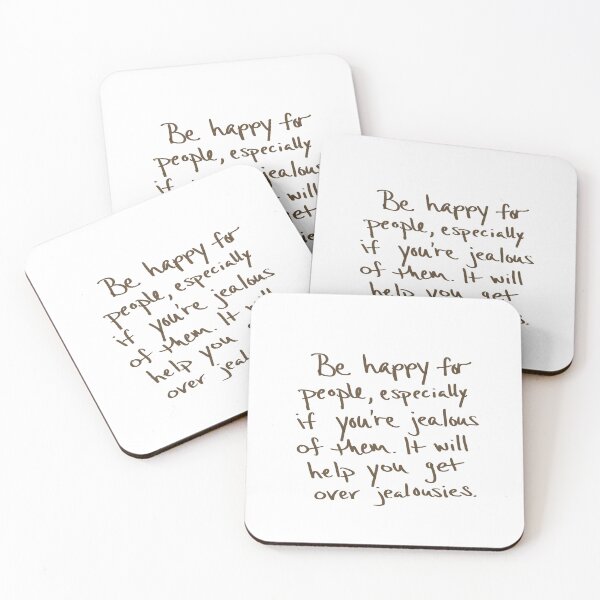 Be happy for
people, especially
if jealous
will
get
Be happy for
people, especially
if you're jealous
of them. It will
help you get
Be happy for
people, especially
if you're jealous
of them. It will
help you
over
Be happy for
people, especially
if you're jealous
of them. It will
help you get
over jealousies.